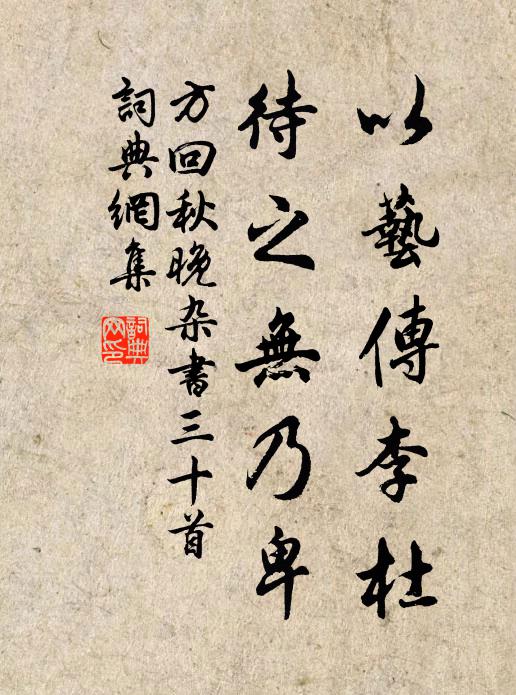 以藝傳李杜
待之無乃卑
方回秋晚杂書三十首
詞典網集
詞典網印